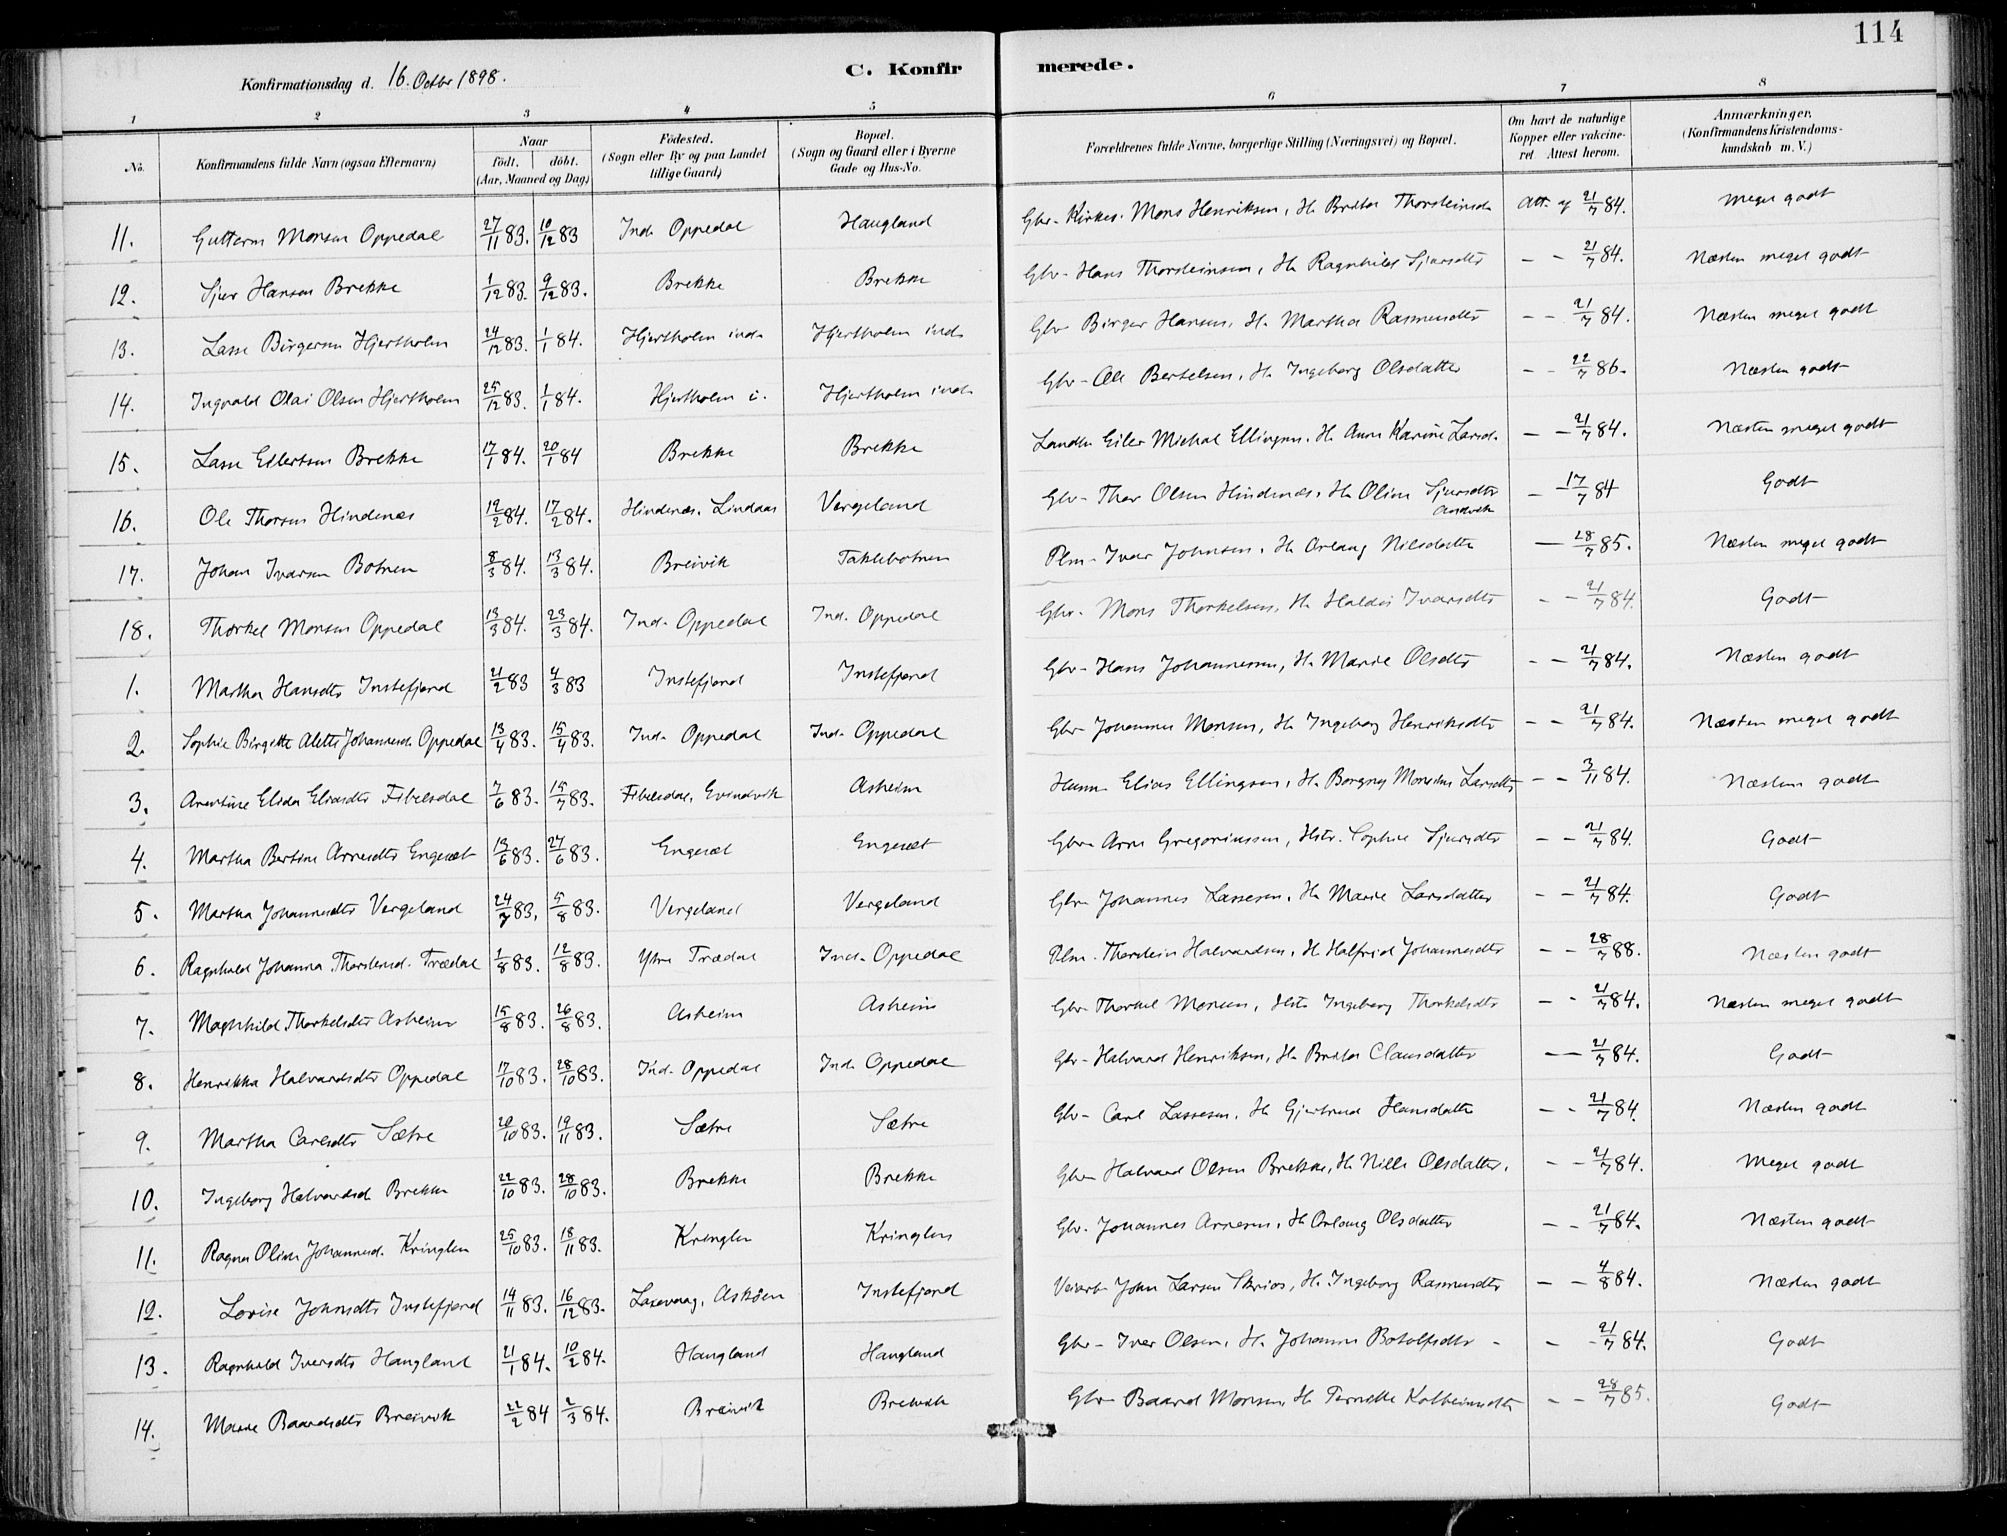 114
Konfirmationsdag d. 16. Octbr 1898.
C. Konfirmerede.
1 2 3 4 5 6 7 8
No. | Konfirmandens fulde Navn (ogsaa Efternavn) | Naar födt. döbt. (Aar, Maaned og Dag) | Födested. (Sogn eller By og paa Landet tillige Gaard) | Bopæl. (Sogn og Gaard eller i Byerne Gade og Hus-No. | Forældrenes fulde Navne, borgerlige Stilling (Næringsvei) og Bopæl. | Om havt de naturlige Kopper eller vakcineret. Attest herom. | Anmærkninger. (Konfirmandens Kristendomskundskab m. V.)
11. Guttorm Monsen Oppedal 27/11 83. 10/12 83 Ind. Oppedal Haugland Gbr. Kirkes. Mons Henriksen, H. Brita Thorsteinsd. Att. af 21/7 84. Meget godt
12. Sjur Hansen Brekke 1/12 83. 9/12 83. Brekke Brekke Gbr. Hans Thorsteinsen, H. Ragnhild Sjursdtr - - 21/7 84. Næsten meget godt
13. Lasse Birgersen Hjertholm 24/12 83. 1/1 84. Hjertholm ind. Hjertholm ind. Gbr Birger Hansen, H. Martha Rasmusdtr - - 21/7 84. Næsten meget godt
14. Ingvald Olai Olsen Hjertholm 25/12 83. 1/1 84. Hjertholm i. Hjertholm ind. Gbr. Ole Bertelsen, H. Ingeborg Olsdatter - - 22/7 86. Næsten godt
15. Lasse Ellertsen Brekke 17/1 84. 20/1 84 Brekke Brekke Landh. Eiler Michal Ellingsen, H. Anne Karine Larsd. - - 21/7 84. Næsten meget godt
16. Ole Thorsen Hindenæs 12/2 84. 17/2 84. Hindenæs, Lindaas Vergeland Gbr. Thor Olsen Hindenæs, H. Oline Sjursdtr Andvik - 17/7 84 Godt
17. Johan Ivarsen Botnen 8/3 84. 13/3 84. Breivik Taklebotnen Plm. Ivar Johnsen, H. Orlaug Nilsdatter - 28/7 85. Næsten meget godt
18. Thorkel Monsen Oppedal 13/3 84. 23/3 84. Ind. Oppedal Ind. Oppedal Gbr. Mons Thorkelsen, H. Haldis Ivarsdtr - - 21/7 84. Godt
1. Martha Hansdtr Instefjord 21/2 83 4/3 83 Instefjord Instefjord Gbr. Hans Johannesen, H. Marie Olsdtr - - 21/7 84. Næsten godt
2. Sophie Birgitte Alette Johannesd. Oppedal 13/4 83. 15/4 83. Ind. Oppedal Ind. Oppedal Gbr. Johannes Monsen, H. Ingeborg Henriksdtr - - 21/7 84. Næsten meget godt
3. Elida Eliasdtr Fibelsdal 7/6 83. 15/7 83. Fibelsdal, Evindvik Asheim Husm. Elias Ellingsen, H. Borgny Larsdtr - - 3/11 84. Næsten godt
4. Martha Bertine Arnesdtr Engesæt 13/6 83. 27/6 83. Engesæt Engesæt Gbr. Arne Gregoriussen, Hstr. Sophie Sjursdtr - - 21/7 84. Godt
5. Martha Johannesdtr Vergeland 24/7 83. 5/8 83. Vergeland Vergeland Gbr. Johannes Lassesen, H. Marie Larsdatter - - 21/7 84. Godt
6. Ragnhild Johanna Thorsteinsd. Trædal 1/8 83. 12/8 83. Ytre Trædal Ind. Oppedal Plm. Thorstein Halvardsen, H. Halfrid Johannesdtr - - 28/7 88. Næsten godt
7. Magnhild Thorkelsdtr Asheim 15/8 83. 26/8 83. Asheim Asheim Gbr. Thorkel Monsen, Hstr Ingeborg Thorkelsdtr - - 21/7 84. Næsten meget godt
8. Henrikka Halvardsdtr Oppedal 17/10 83. 28/10 83. Ind. Oppedal Ind. Oppedal Gbr. Halvard Henriksen, H. Brita Clausdatter - - 21/7 84. Godt
9. Martha Carlsdtr Sætre 20/10 83. 19/11 83. Sætre Sætre Gbr. Carl Lassesen, H. Gjertrud Hansdatter - - 21/7 84. Næsten godt
10. Ingeborg Halvardsd. Brekke 22/10 83. 28/10 83. Brekke Brekke Gbr. Halvard Olsen Brekke, H. Nille Olsdatter. - - 21/7 84. Meget godt
11. Ragna Oline Johannesd. Kringlen 25/10 83. 18/11 83. Kringlen Kringlen Gbr. Johannes Arnesen, H. Orlaug Olsdatter - - 21/7 84. Næsten godt
12. Lovise Johnsdtr Instefjord 14/11 83. 16/12 83. Laxevaag, Askøen Instefjord Veiarb. John Larsen Skrios, H. Ingeborg Rasmusdtr - - 4/8 84. Næsten godt
13. Ragnhild Iversdtr Haugland 21/1 84. 10/2 84. Haugland Haugland Gbr. Iver Olsen, H. Johanne Botolfsdtr - - - 21/7 84. Godt
14. Marie Baardsdtr Breivik 22/2 84 2/3 84. Breivik Breivik Gbr. Baard Monsen, H. Pernille Kolbeinsdtr - - 28/7 85. Godt